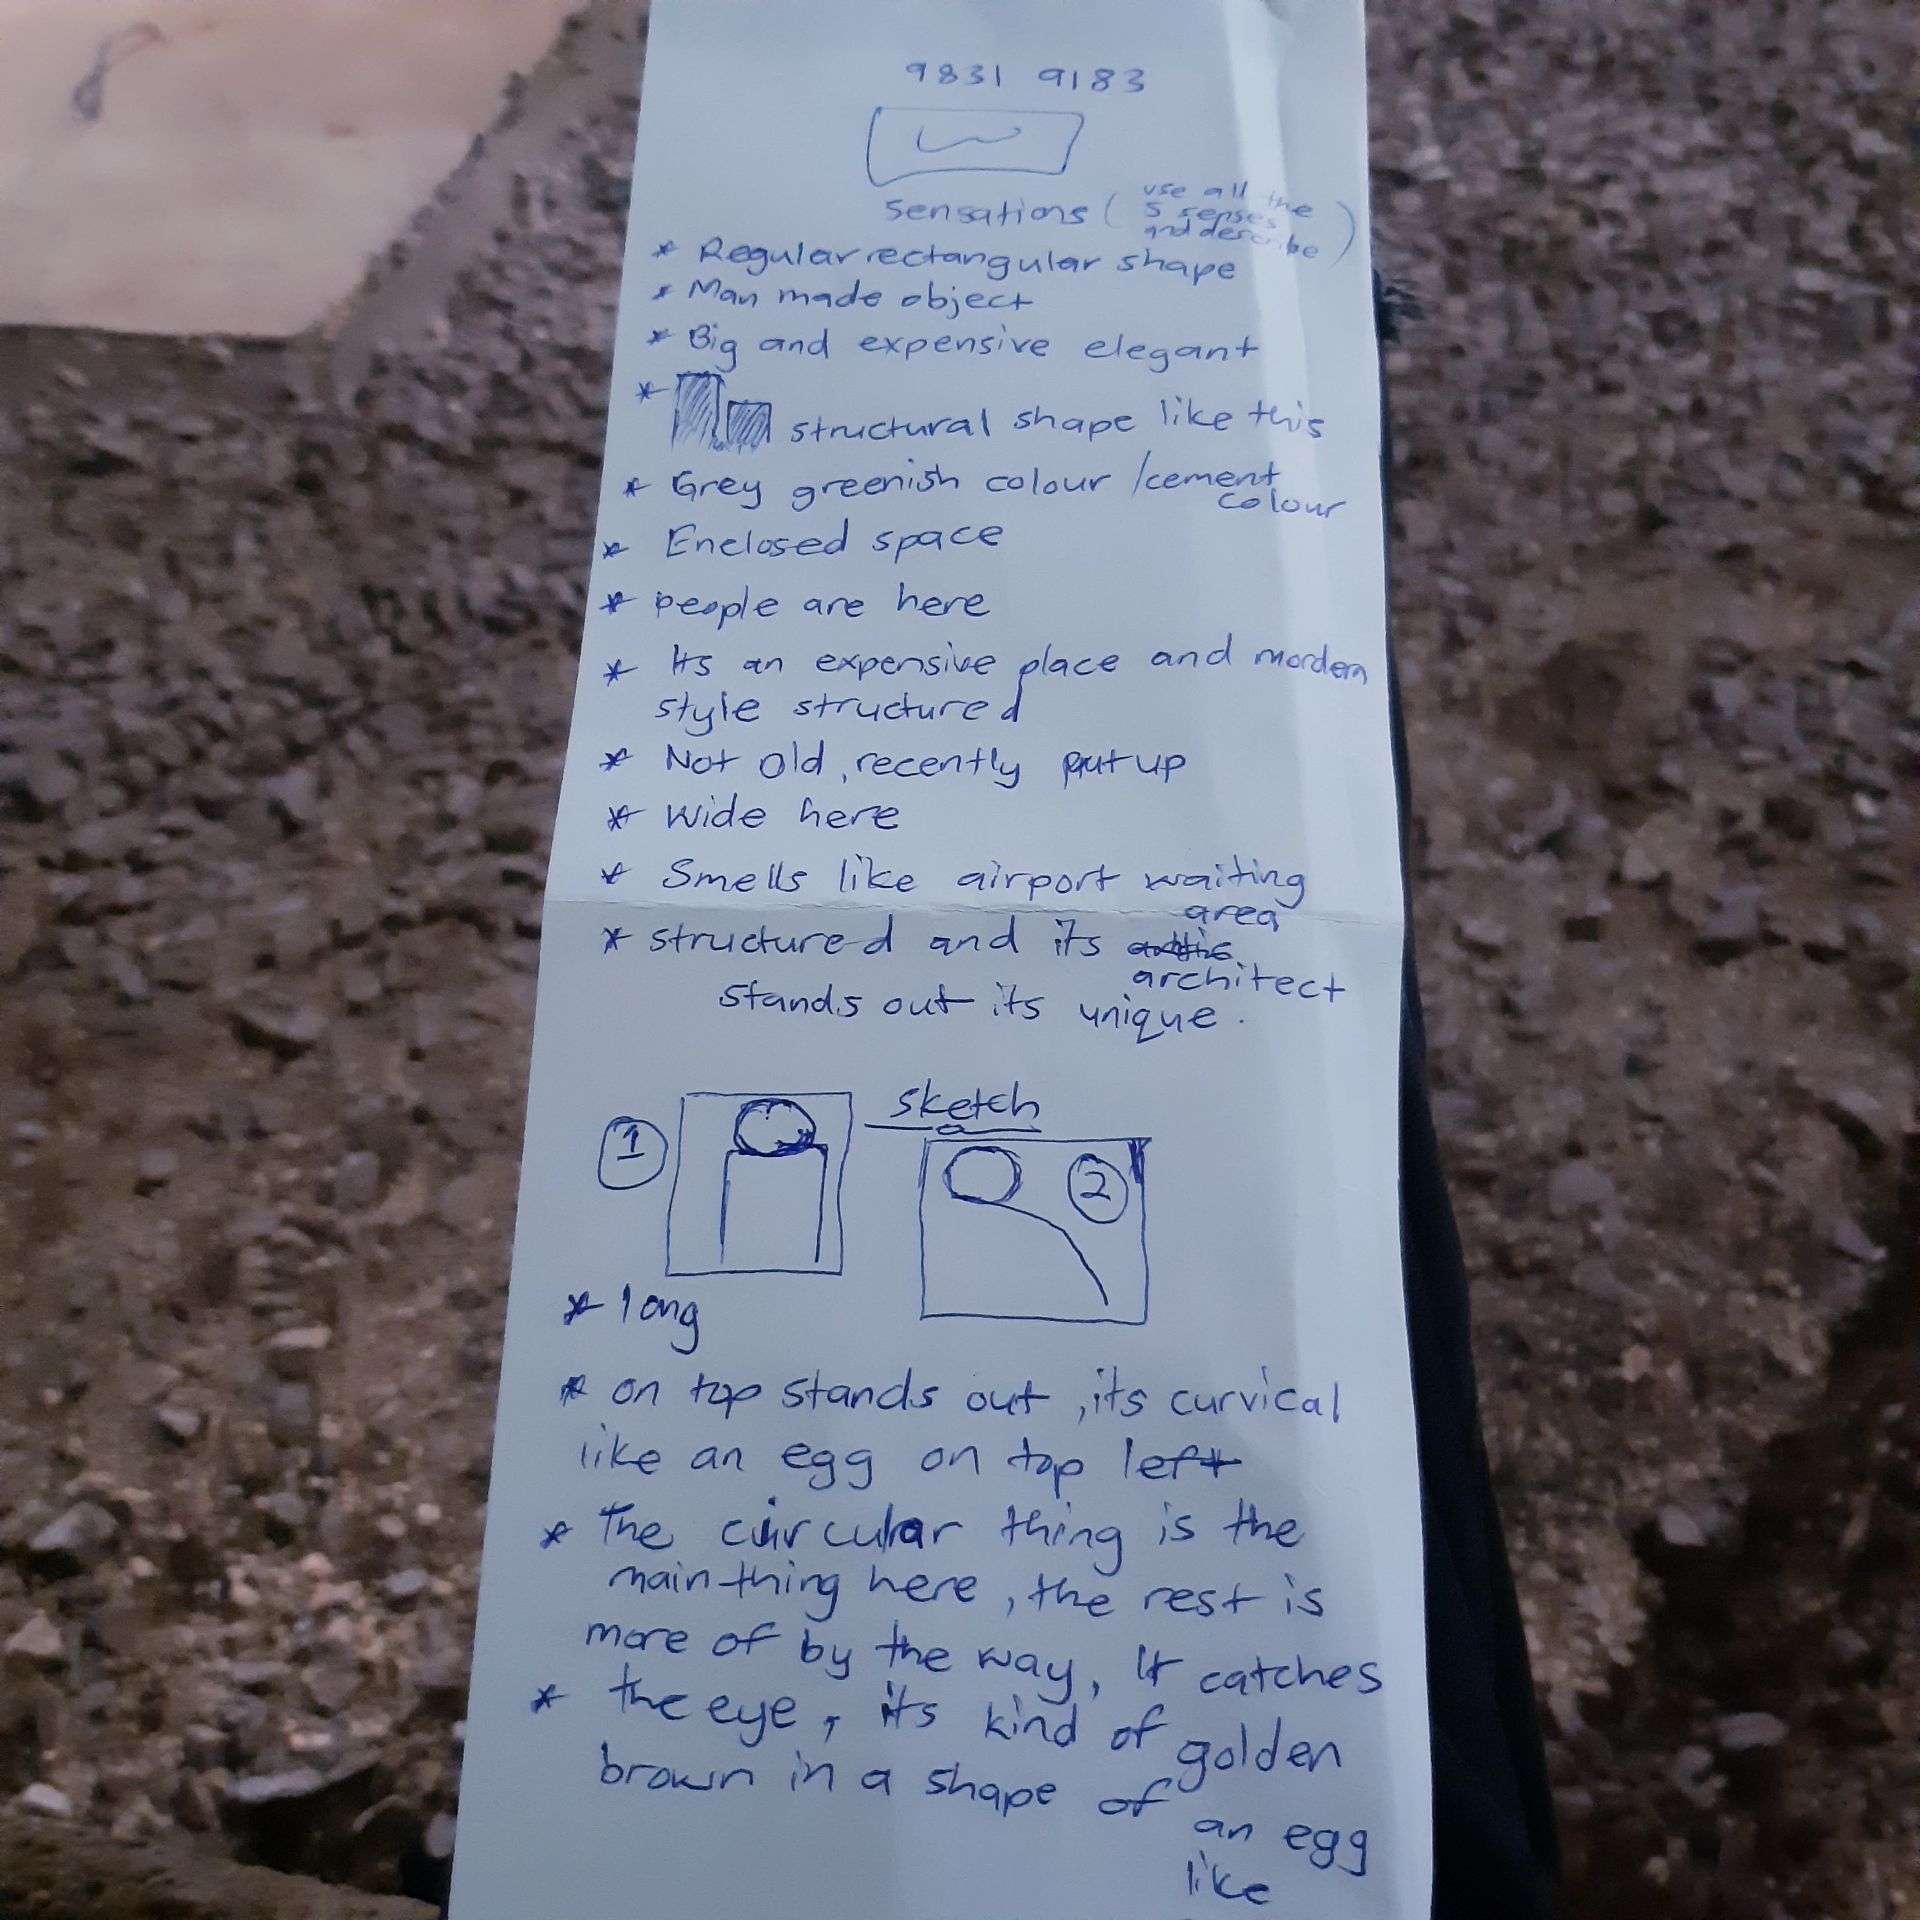 9831 9183
Sensations (use all the
5 senses
and describe)
* Regular rectangular shape
* Man made object
* Big and expensive elegant
* structural shape like this
* Grey greenish colour /cement
colour
* Enclosed space
* people are here
* Its an expensive place and mordern
style structured
* Not old, recently put up
* Wide here
* Smells like airport waiting
area
* structured and its
architect
stands out its unique.
sketch
1
2
* long
* on top stands out, its curvical
like an egg on top left
* The circular thing is the
main thing here, the rest is
more of by the way, It catches
* the eye, its kind of golden
brown in a shape of
an egg
like